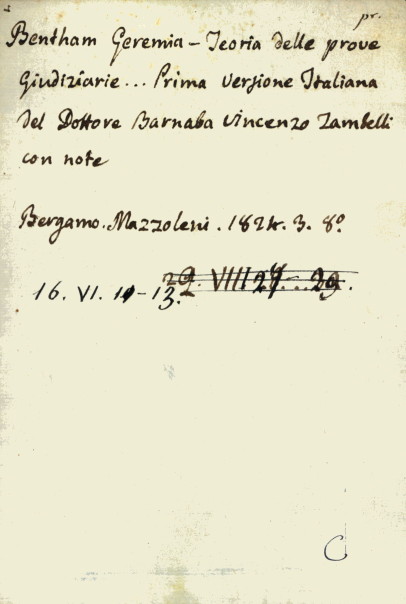 pr.
Bentham Geremia - Teoria delle prove
Giudiziarie... Prima Versione Italiana
del Dottore Barnaba Vincenzo Zambelli
con note
Bergamo. Mazzoleni. 1824. 3. 8º
29. VIII 27 - 29.
16. VI. 11 - 13.
C